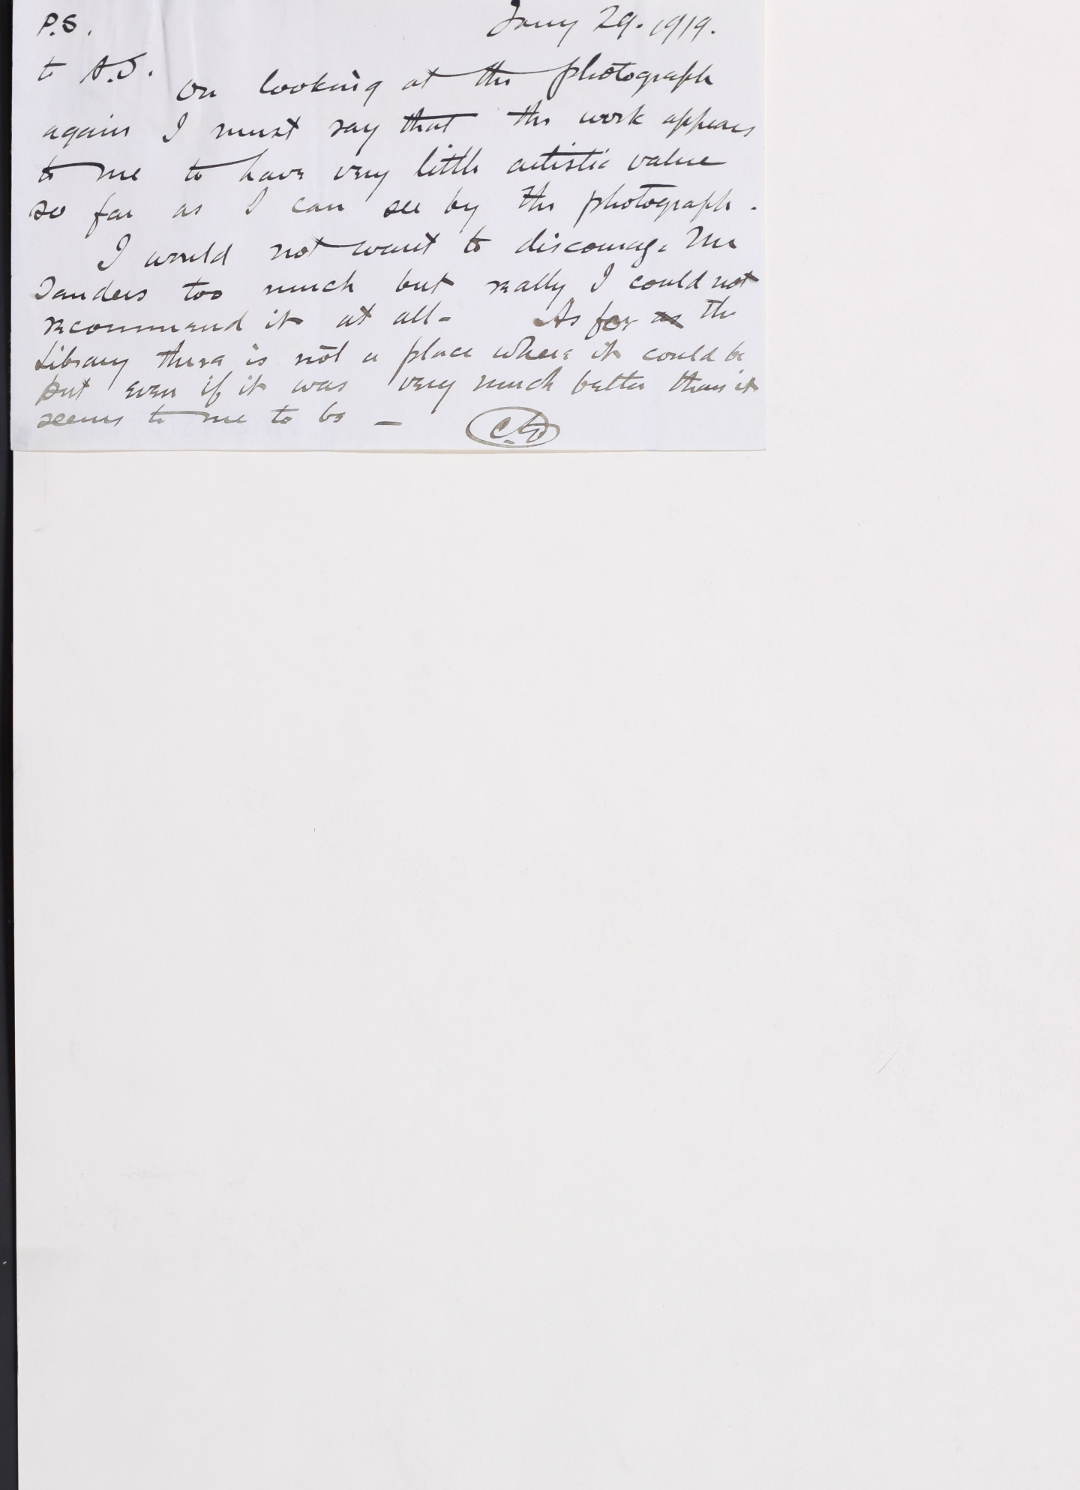 P.S. Jany 29. 1919.
to A.S. On looking at the photograph
again I must say that the work appears
to me to have very little artistic value
so far as I can see by the photograph.
I would not want to discourage Mr
Sanders too much but really I could not
recommend it at all - As for as the
Library there is not a place where it could be
put even if it was very much better than it
seems to me to be —